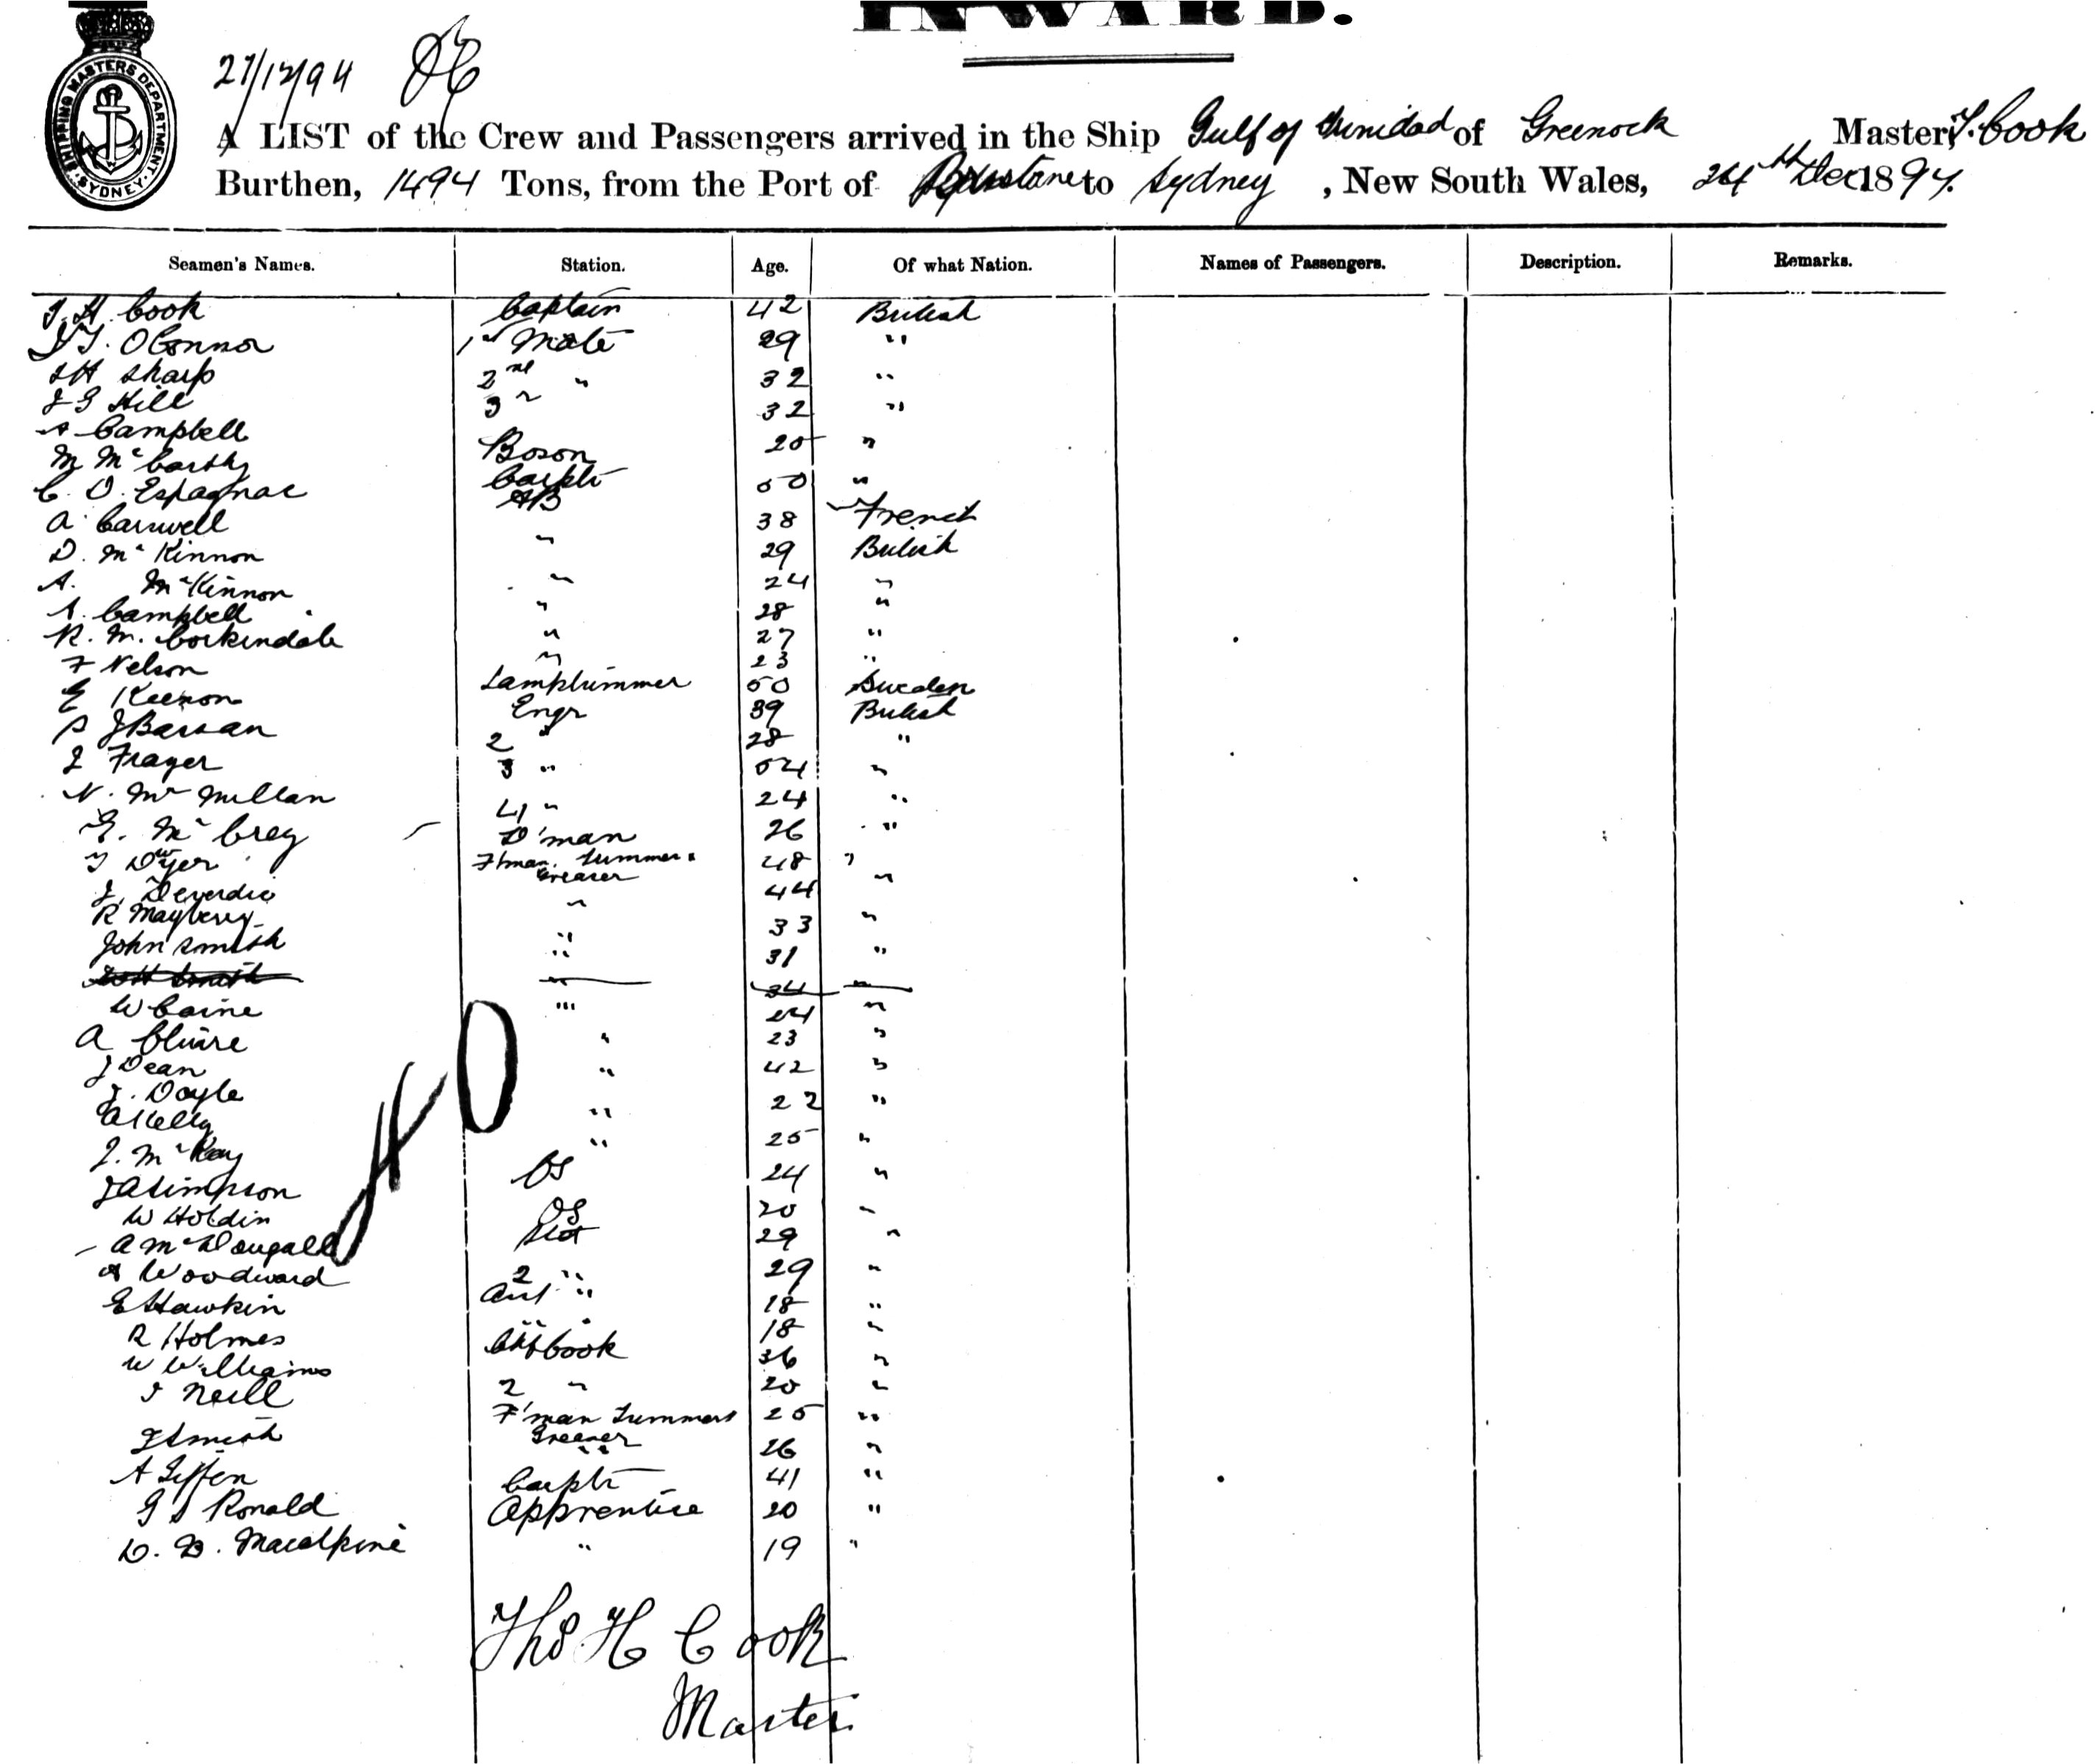 INWARD.
SHIPPING MASTERS DEPARTMENT. SYDNEY.
27/12/94
A LIST of the Crew and Passengers arrived in the Ship Gulf of Trinidad of Greenock Master, T. Cook
Burthen, 1494 Tons, from the Port of to Sydney , New South Wales, 24th Dec 1894.
Seamen's Names. Station. Age. Of what Nation. Names of Passengers. Description. Remarks.
T. H. Cook Captain 42 British
O'Connor 1st Mate 29 "
Sharp 2nd " 32 "
Hill 3 " 32 "
A Campbell Boson 20 "
M McCarthy Carptr 50 "
C. D. Espagnac AB 38 French
A. Carswell " 29 British
D. McKinnon " 24 "
A. McKinnon " 28 "
A. Campbell " 27 "
R. M. Corkindale " 23 "
F Nelson Lamptrimmer 50 Sweden
E Keenon Engr 39 British
2 " 28 "
J Frazer 3 " 54 "
N. McMillan 4 " 24 "
McCrey D'man 26 "
Dyer F'man Trimmer & Greaser 48 "
J. " 44 "
R Mayberry " 33 "
John Smith " 31 "
Smith " 34 "
W Caine " 24 "
A " 23 "
J Dean " 42 "
J. Doyle " 22 "
A Kelly " 25 "
J. McKay OS 24 "
J A Simpson OS 20 "
W Holdin 29 "
A McDougall 2 " 29 "
A Woodward " 18 "
E Hawkin " 18 "
R Holmes Cook 36 "
W Williams 2 " 20 "
Neill F'man Trimmer Greaser 25 "
J Smith " 26 "
A Carptr 41 "
G S Ronald Apprentice 20 "
D. B. Macalpine " 19 "
Thos H Cook
Master